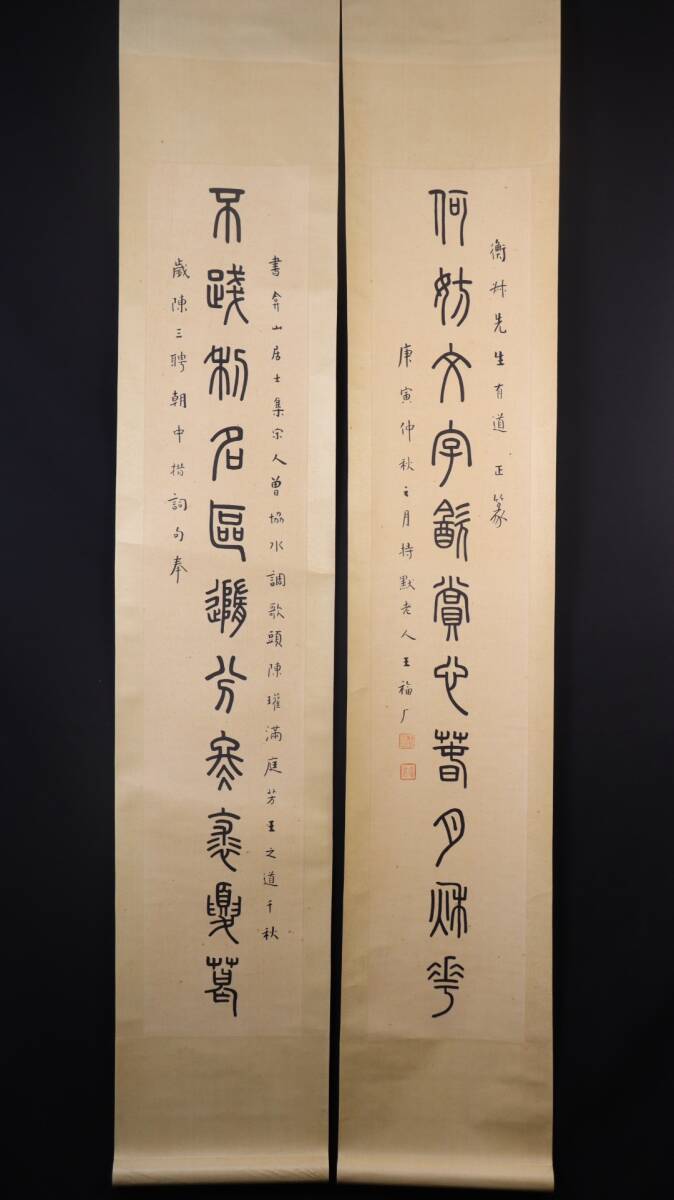 衡叔先生有道正篆
何妨文字㱃賞心萅月秌華
庚寅仲秋之月持默老人王福厂
書弇山居士集宋人曾協水調歌頭陳瓘滿庭芳王之道千秋
不踐利名區隨分冬裘夏葛
歲陳三聘朝中措詞句奉